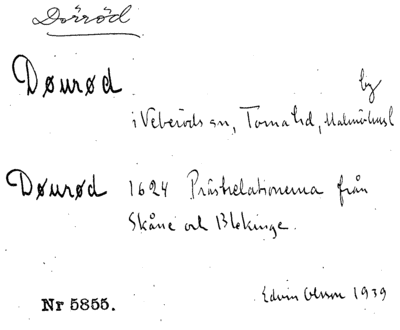 Dörröd
Døurød by
i Veberöds sn, Torna hd, Malmöhusl
Døurød 1624 Prästrelationerna från
Skåne och Blekinge.
Edvin Olson 1939
Nr 5855.